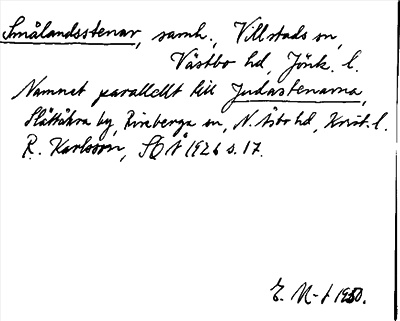 Smålandsstenar, samh., Villstads sn,
Västbo hd, Jönk. l.
Namnet parallellt till Judastenarna,
Slättåkra by, Riseberga sn, N. Åsbo hd, Krist. l.
R. Karlsson, SOÅ 1926 s. 17.
E. M-t 1950.